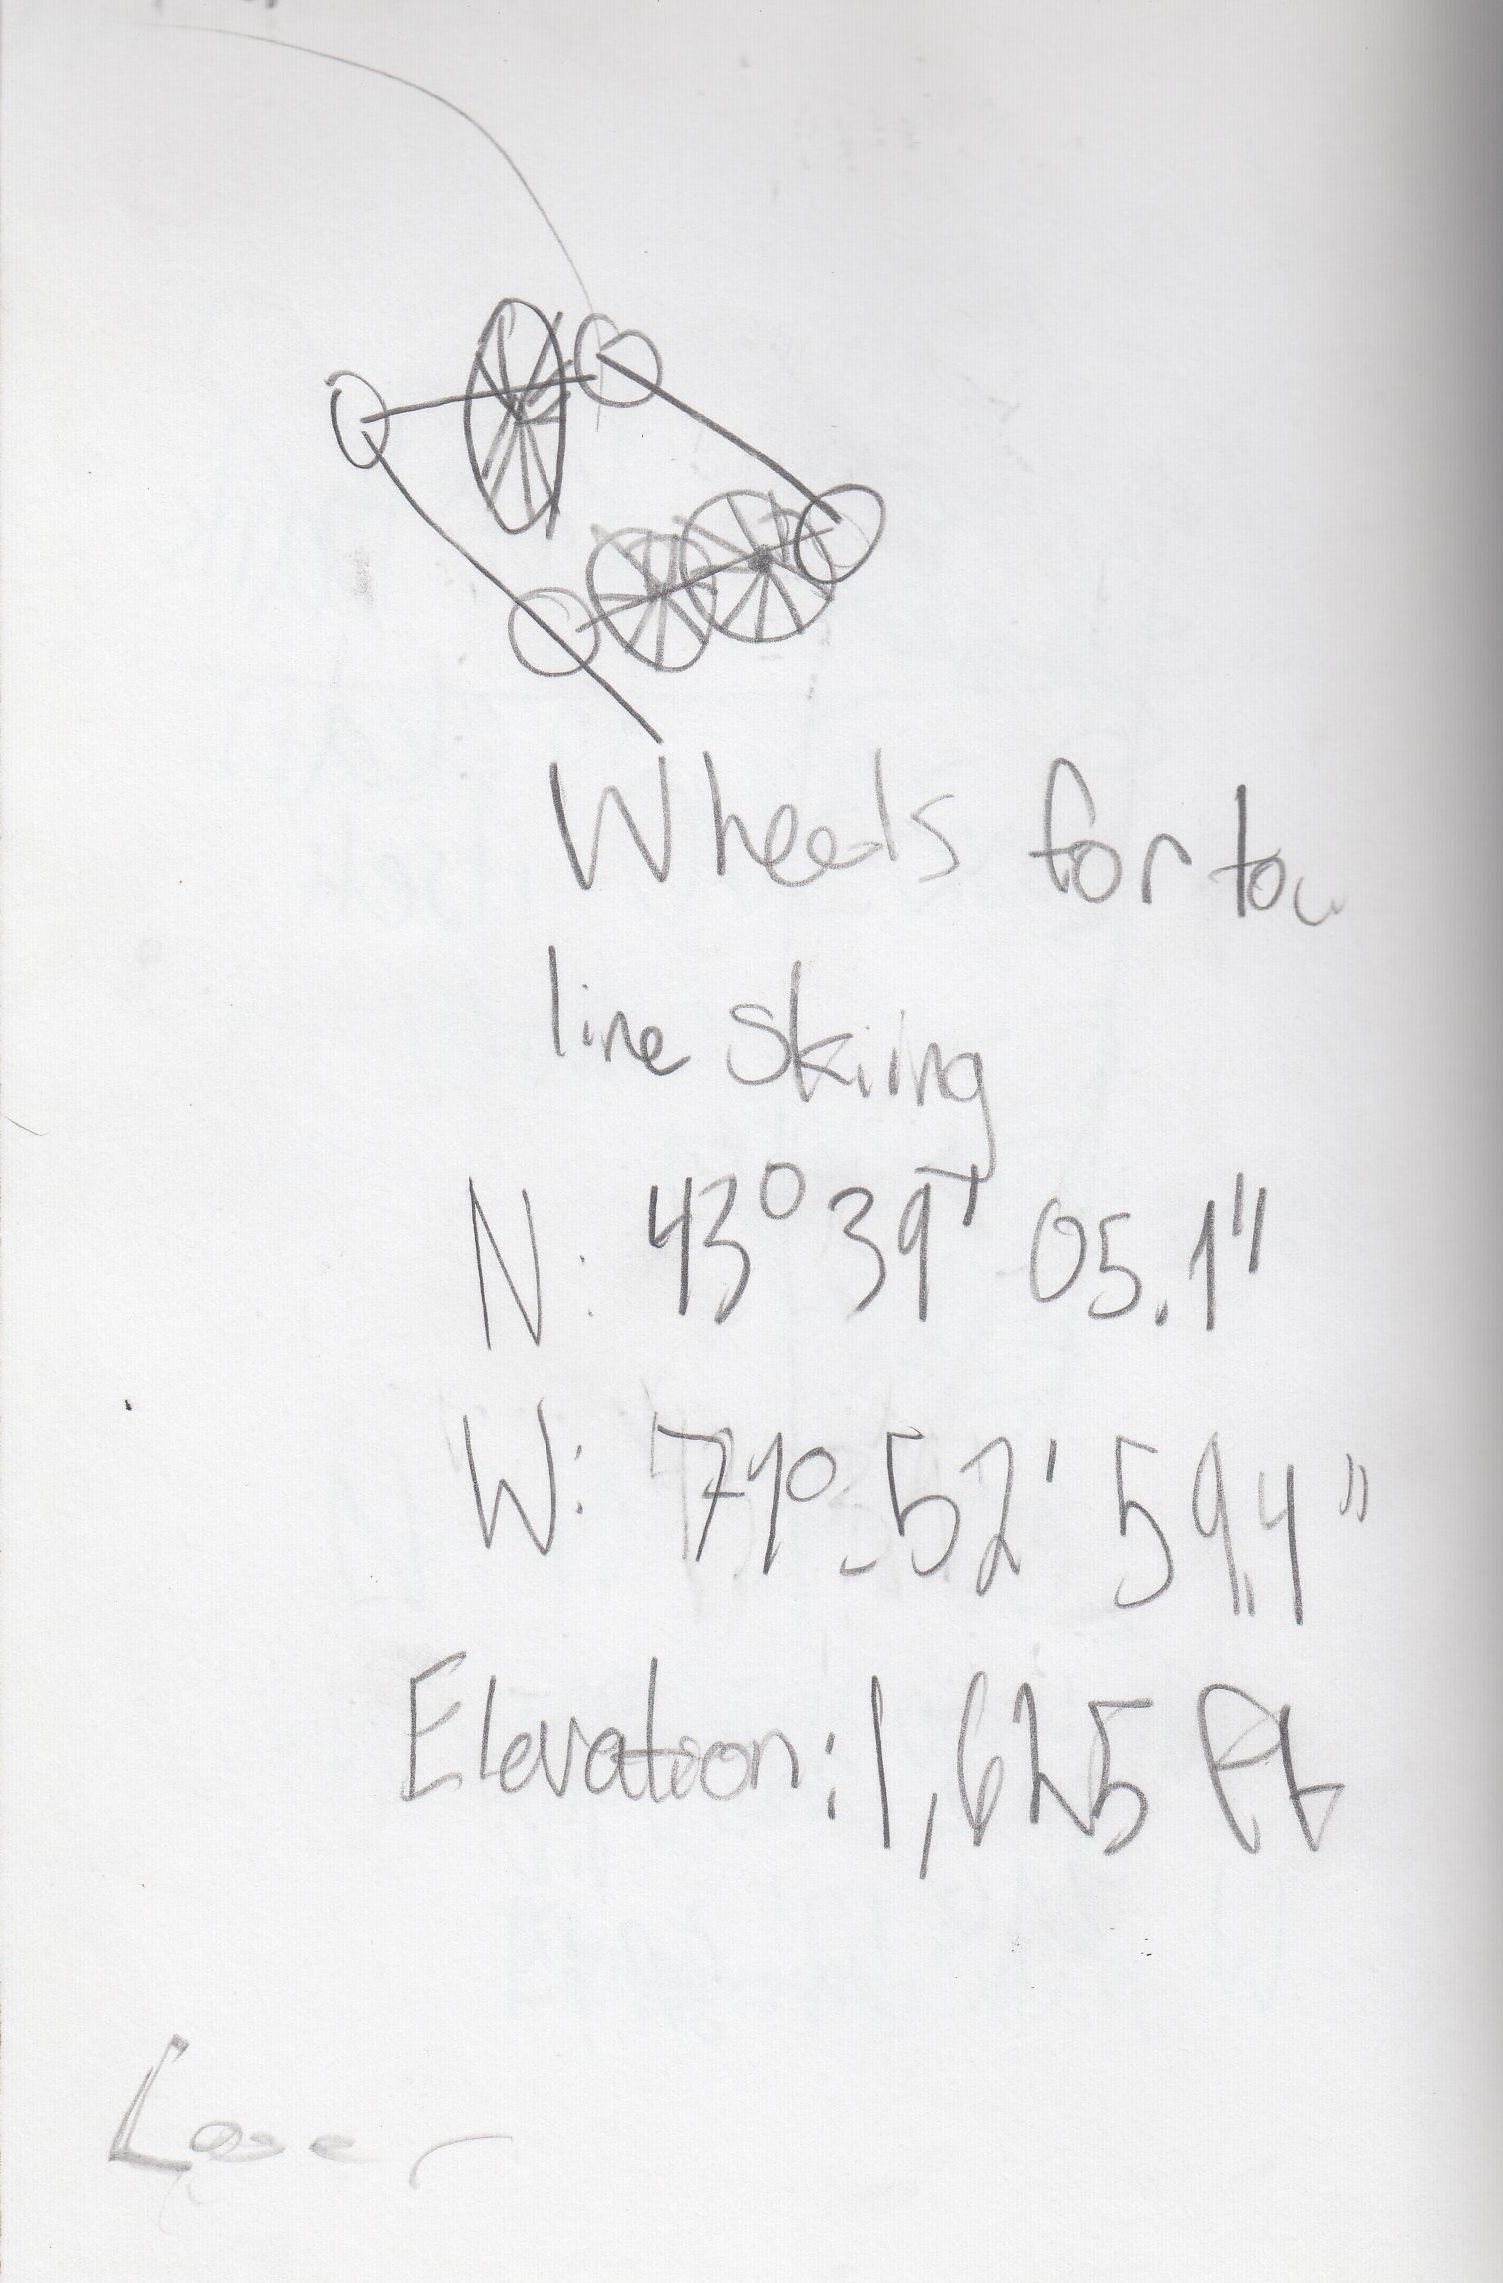 Wheels for tow
line skiing
N: 43° 39' 05.1"
W: 71° 52' 59.4"
Elevation: 1,625 ft
Loser